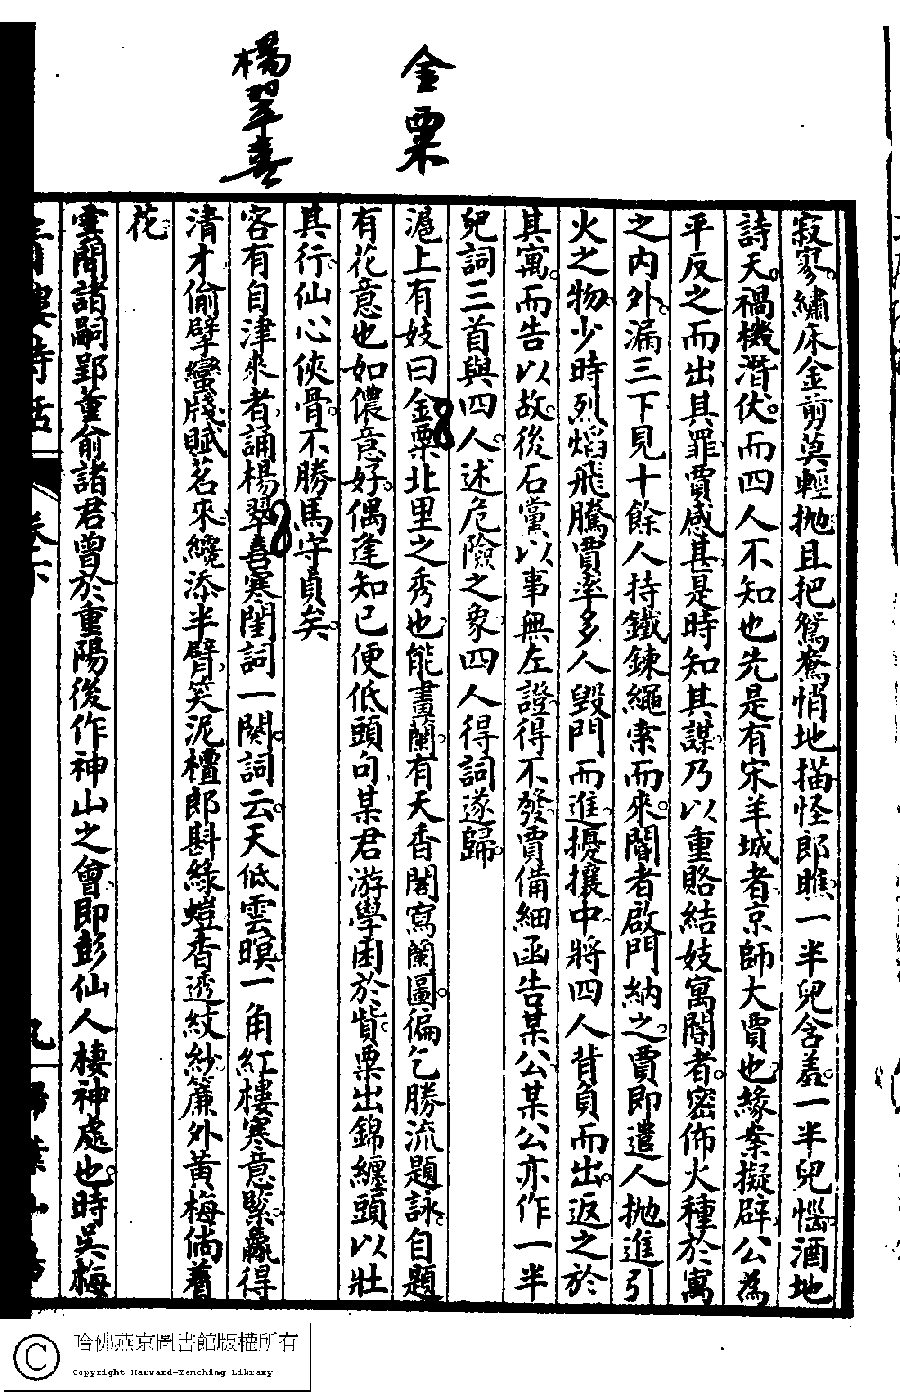 金粟
楊翠喜
寂寥繡床金剪莫輕拋且把鴛鴦悄地描怪郎瞧一半兒含羞一半兒惱酒地
詩天禍機潛伏而四人不知也先是有宋羊城者京師大賈也緣案擬辟公為
平反之而出其罪賈感甚是時知其謀乃以重賂結妓寓閽者密佈火種於寓
之內外漏三下見十餘人持鐵鍊繩索而來閽者啟門納之賈即遣人拋進引
火之物少時烈焰飛騰賈率多人毀門而進擾攘中將四人背負而出返之於
其寓而告以故後石黨以事無左證得不發賈備細函告某公某公亦作一半
兒詞三首與四人述危險之象四人得詞遂歸
滬上有妓曰金粟北里之秀也能畫蘭有天香閣寫蘭圖徧乞勝流題詠自題
有花意也如儂意好偶逢知已便低頭句某君游學困於貲粟出錦纏頭以壯
其行仙心俠骨不勝馬守貞矣
客有自津來者誦楊翠喜寒閨詞一闋詞云天低雲暝一角紅樓寒意緊贏得
清才偷擘蠻牋賦茗來纔添半臂笑泥檀郎斟綠螘香透紋紗簾外黃梅倘着
花
雲閒諸嗣郢董俞諸君曾於重陽後作神山之會即彭仙人棲神處也時吳梅
卷下
九
哈佛燕京圖書館版權所有
Copyright Harvard-Yenching Library